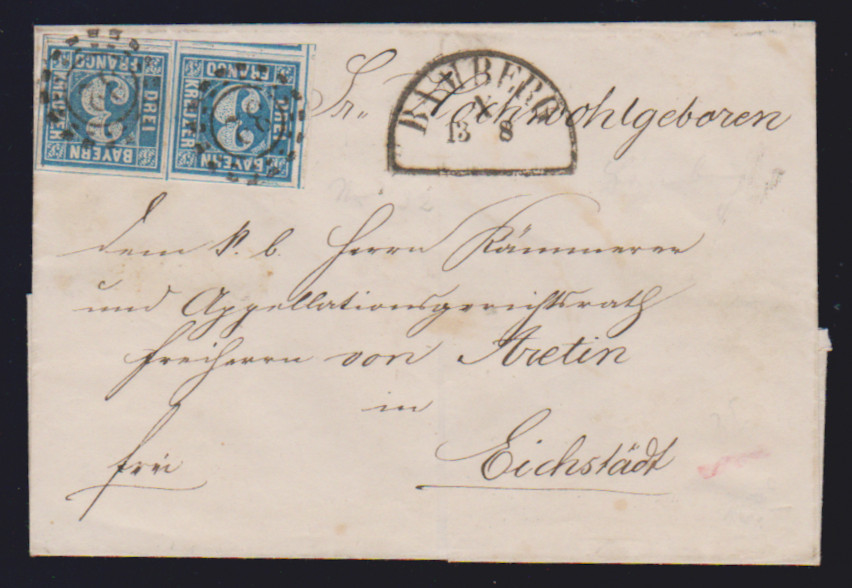 FRANCO
DREI
KREUZER
BAYERN
3
FRANCO
DREI
KREUZER
BAYERN
3
BAMBERG
13 8
Sr. Hochwohlgeboren
dem k. b. Herrn Kämmerer
und Appellationsgerichtsrath
Freiherrn von Aretin
in
frei Eichstädt